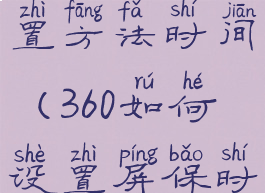 zhì fāng fǎ shí jiān
置方法时间
rú hé
(360如何
shè zhì píng bǎo shí
设置屏保时